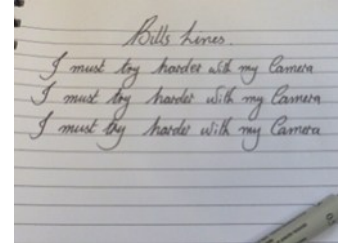 Bills Lines.
I must try harder with my Camera
I must try harder with my Camera
I must try harder with my Camera